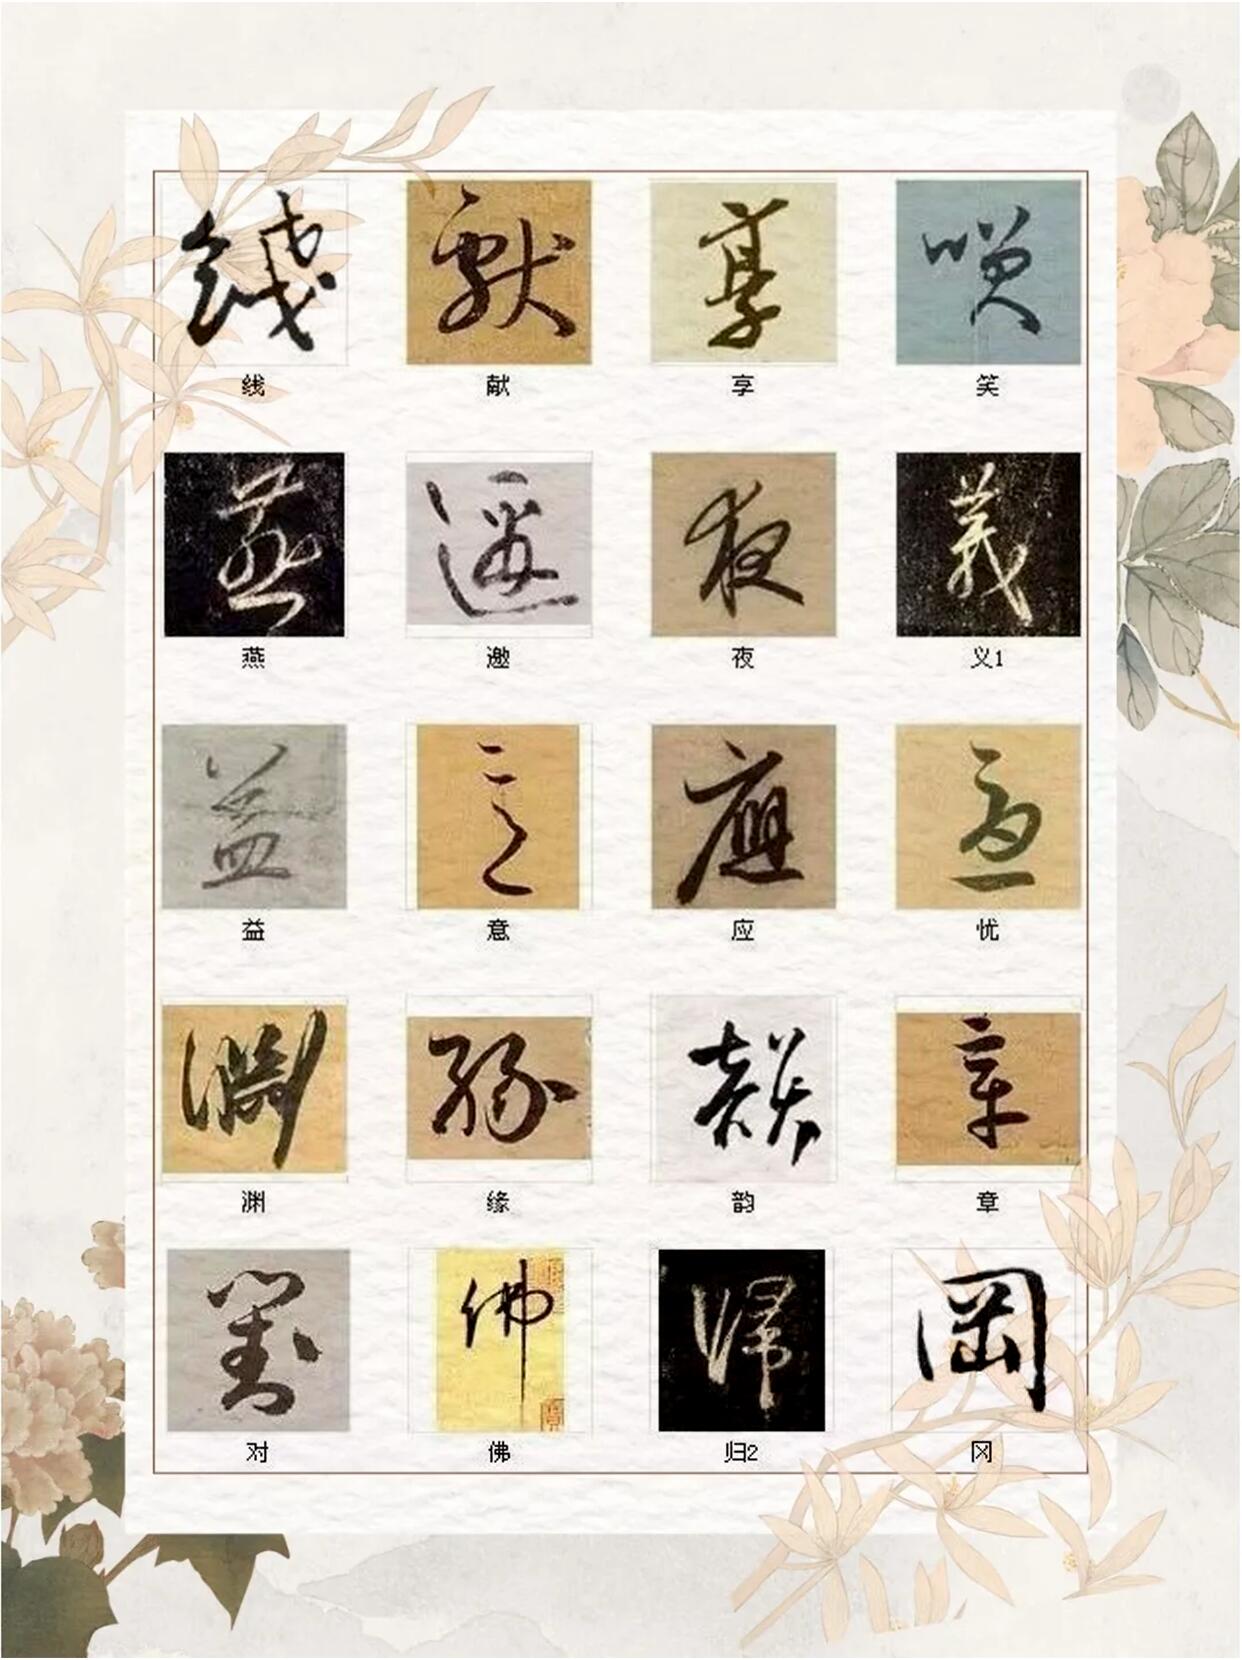 线 献 享 笑
燕 邀 夜 义1
益 意 应 忧
渊 缘 韵 章
对 佛 归2 冈